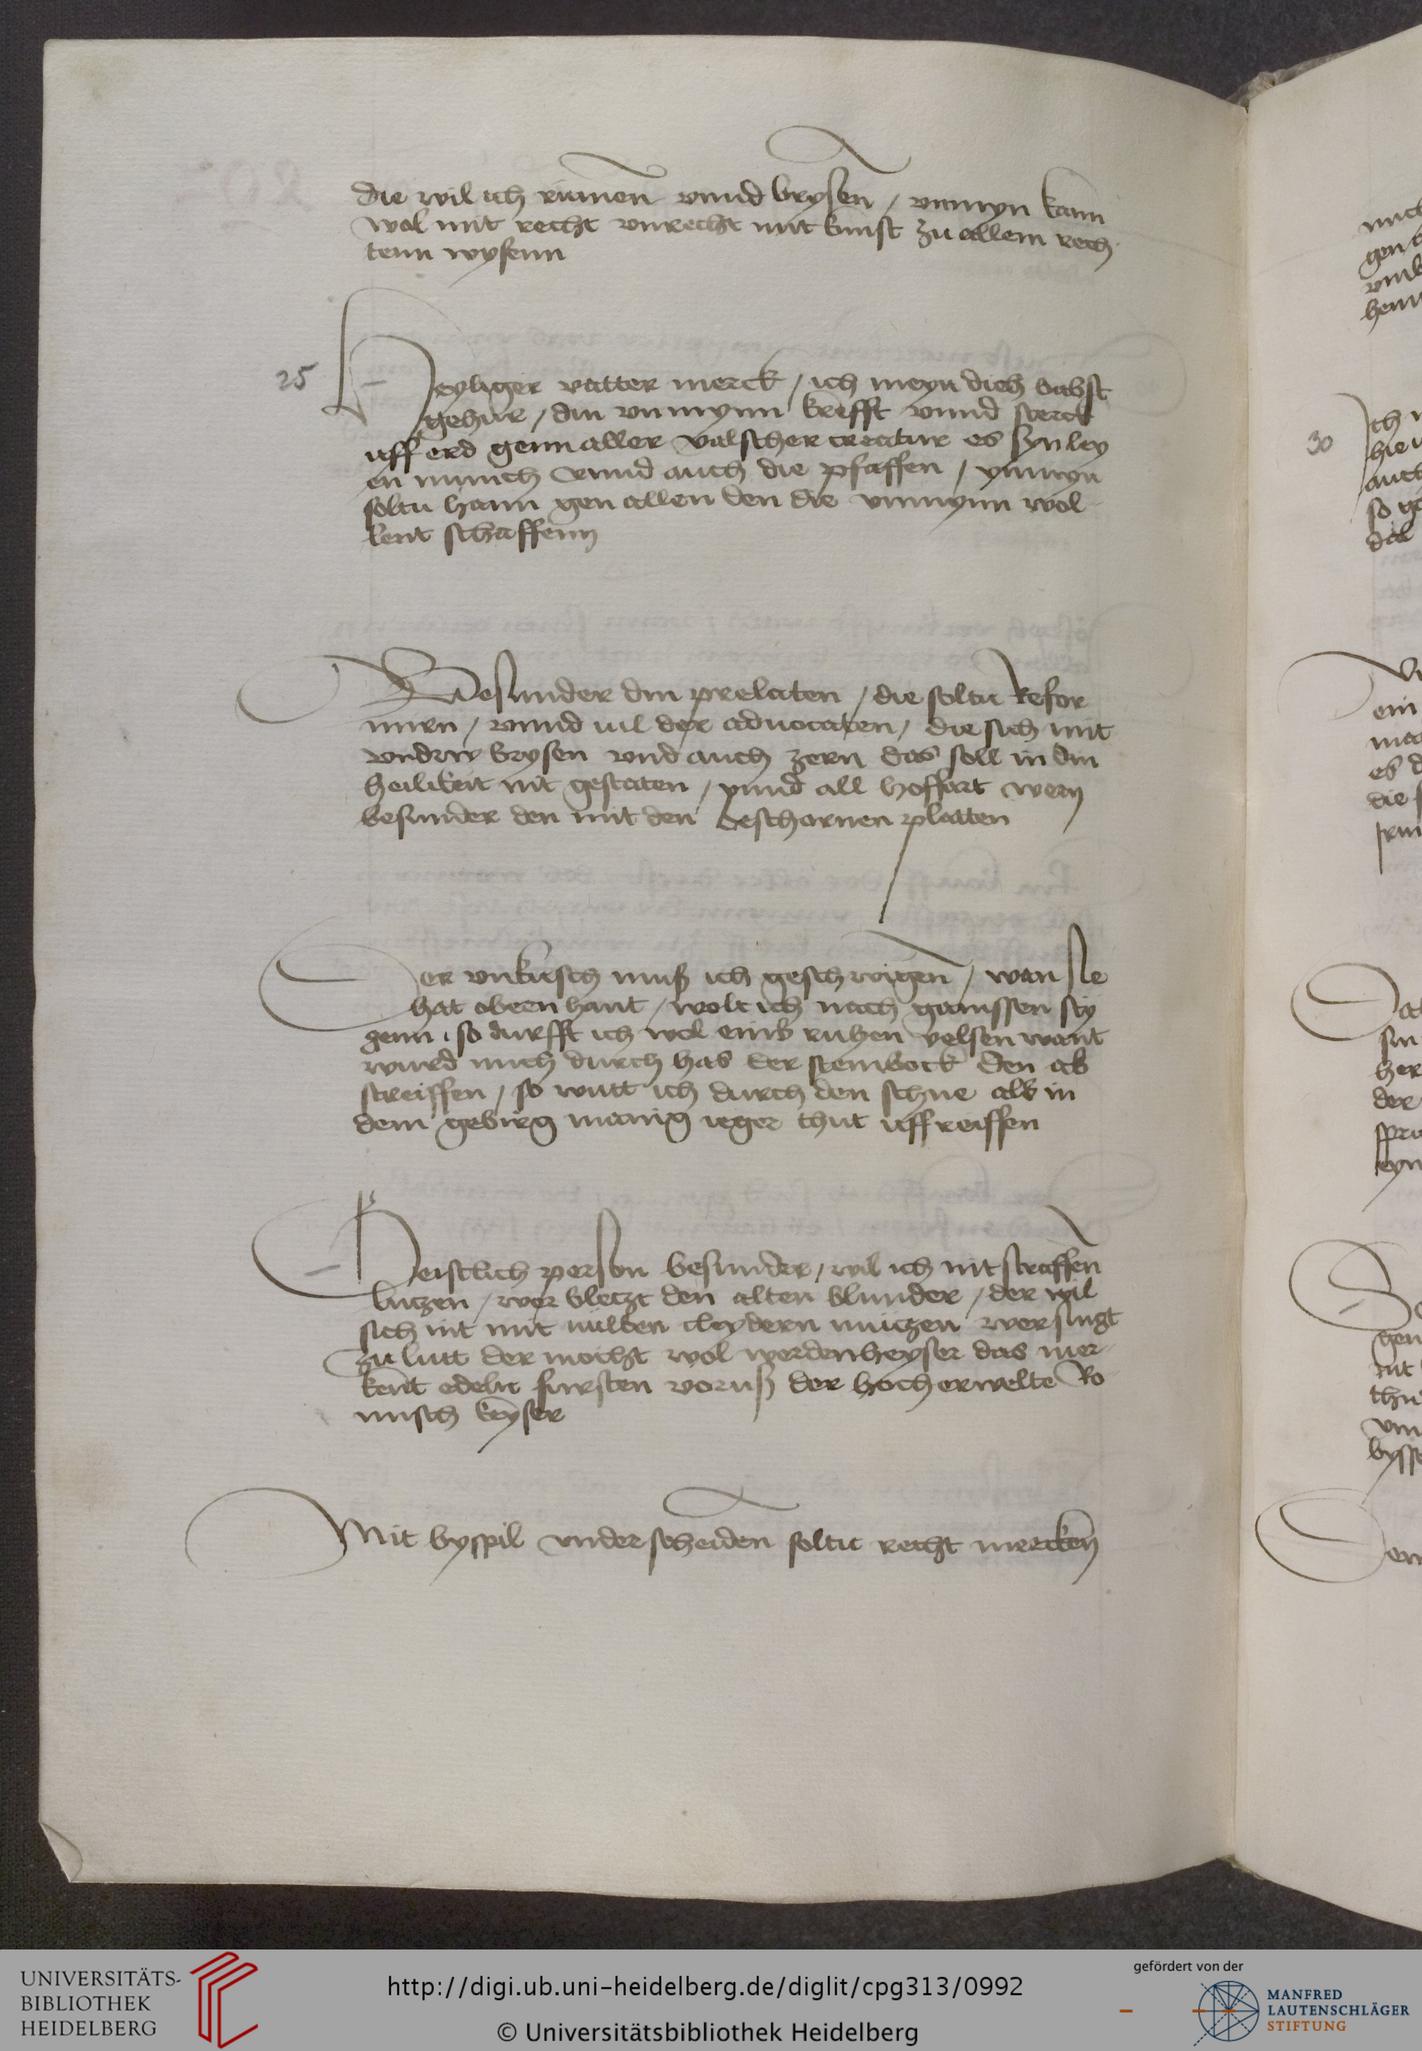 die wil ich rumen vnnd brysen / vnmyn kann
wol mit recht vnrecht mit kunst zu allem rech
tenn wysenn
25
Heyliger vatter merck / ich meyn dich babst
gehur / din vnmynn krefft vnnd sterck
uff erd genn aller valscher creatur es syn ley
en munch vnnd auch die pfaffen / vnmyn
soltu hann gen allen den die vnmynn wol
lent schaffenn
Besunder din prelaten / die soltu Refor
mirn / vnnd uil der aduocaten / die sich mit
vndrw brysen vnd auch zern das soll in din
heilikeit nit gestaten / vnnd all hoffart wern
besunder den mit den beschornen platten
Der vnkusch muß ich geschwigen / wan sie
hat oberhant / wolt ich nach gamssen sty
genn so durfft ich wol eins ruhen velsen want
wurd mich durch has der steinbock den ab
streiffen / so wutt ich durch den schne als in
dem gebirg manig ieger thut uff reiffen
Geistlich person besunder / wil ich nit straffen
lutzen / wer bletzt den alten blunder / der wil
sich nit mit nuwen cleydern mutzen wer singt
zu lutt der mocht wol werden heyser das mer
kent edeln fursten voruß der hoch erwelte Ro
misch keyser
Mit byspil vnderscheiden soltu recht mercken
30
UNIVERSITÄTS-
BIBLIOTHEK
HEIDELBERG
http://digi.ub.uni-heidelberg.de/diglit/cpg313/0992
© Universitätsbibliothek Heidelberg
gefördert von der
MANFRED
LAUTENSCHLÄGER
STIFTUNG